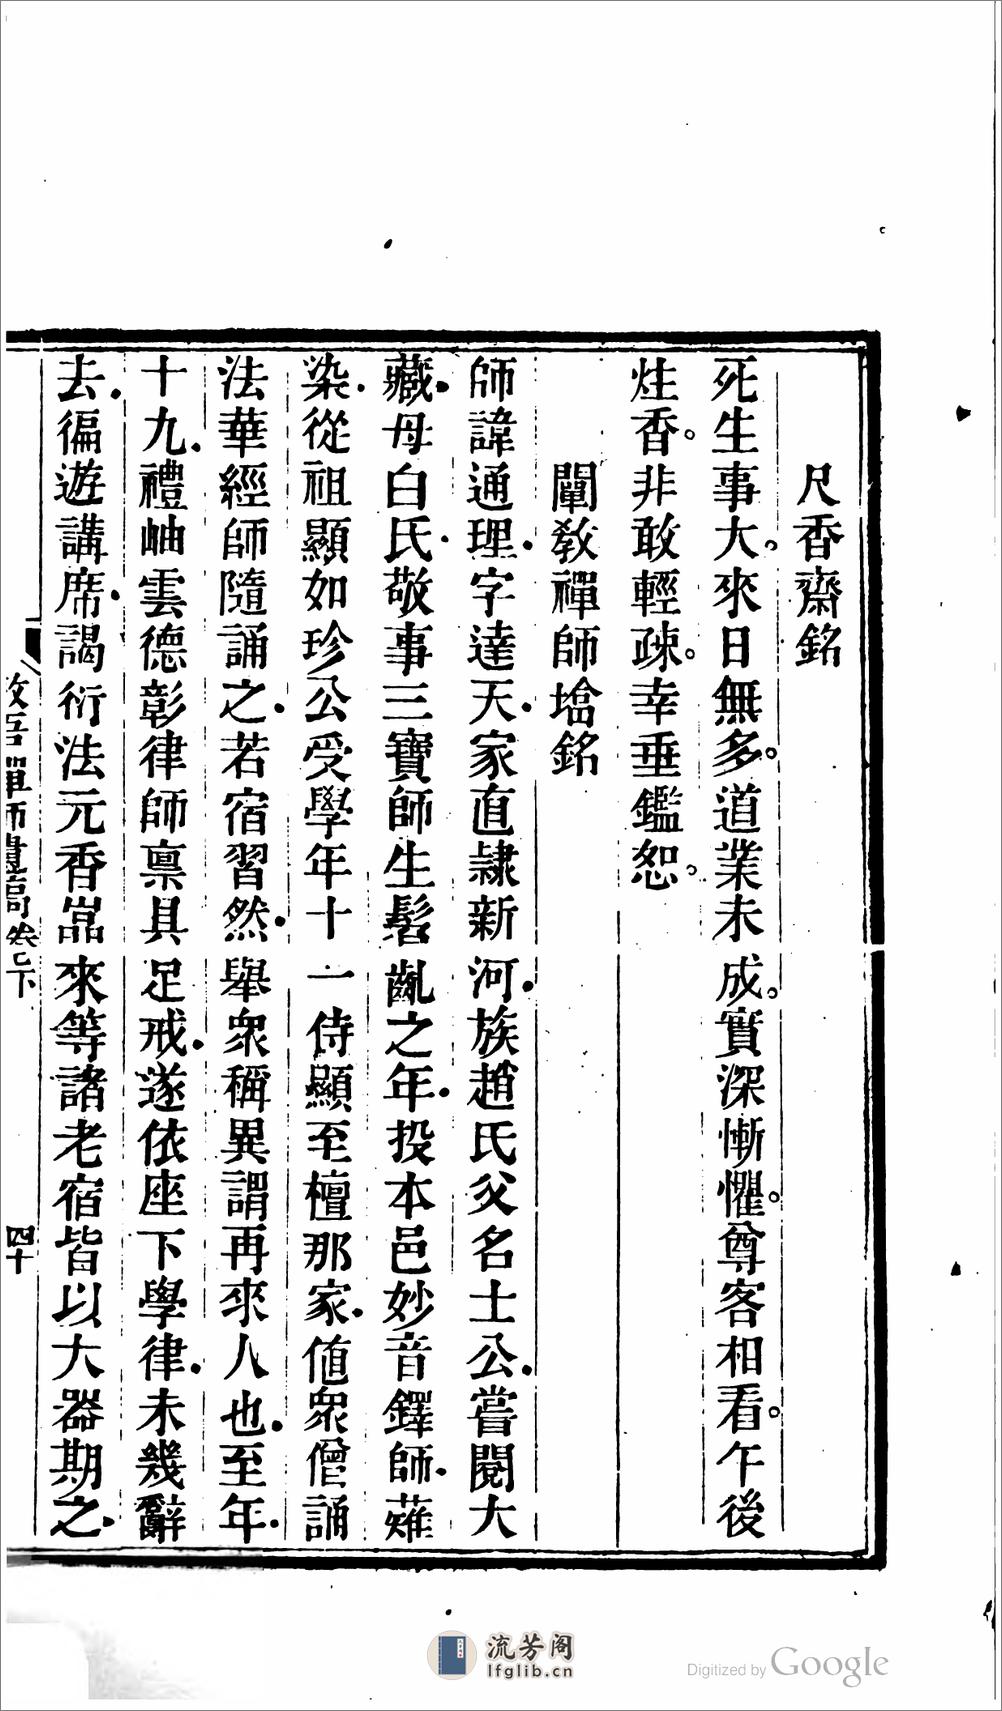 尺香齋銘
死生事大。來日無多。道業未成。實深慚懼。尊客相看。午後
炷香。非敢輕疎。幸垂鑑恕。
闡教禪師墖銘
師諱通理.字達天.家直隷新河.族趙氏父名士公.嘗閱大
藏.母白氏.敬事三寶師生髫齓之年.投本邑妙音鐸師.薙
染.從祖顯如珍公受學年十一侍顯至檀那家.値衆僧誦
法華經師隨誦之.若宿習然.舉衆稱異謂再來人也.至年.
十九.禮岫雲德彰律師稟具足戒.遂依座下學律.未幾辭
去.徧遊講席.謁衍法元香嵓來等諸老宿皆以大器期之.
卷下
四十
流芳阁
lfglib.cn
Digitized by Google